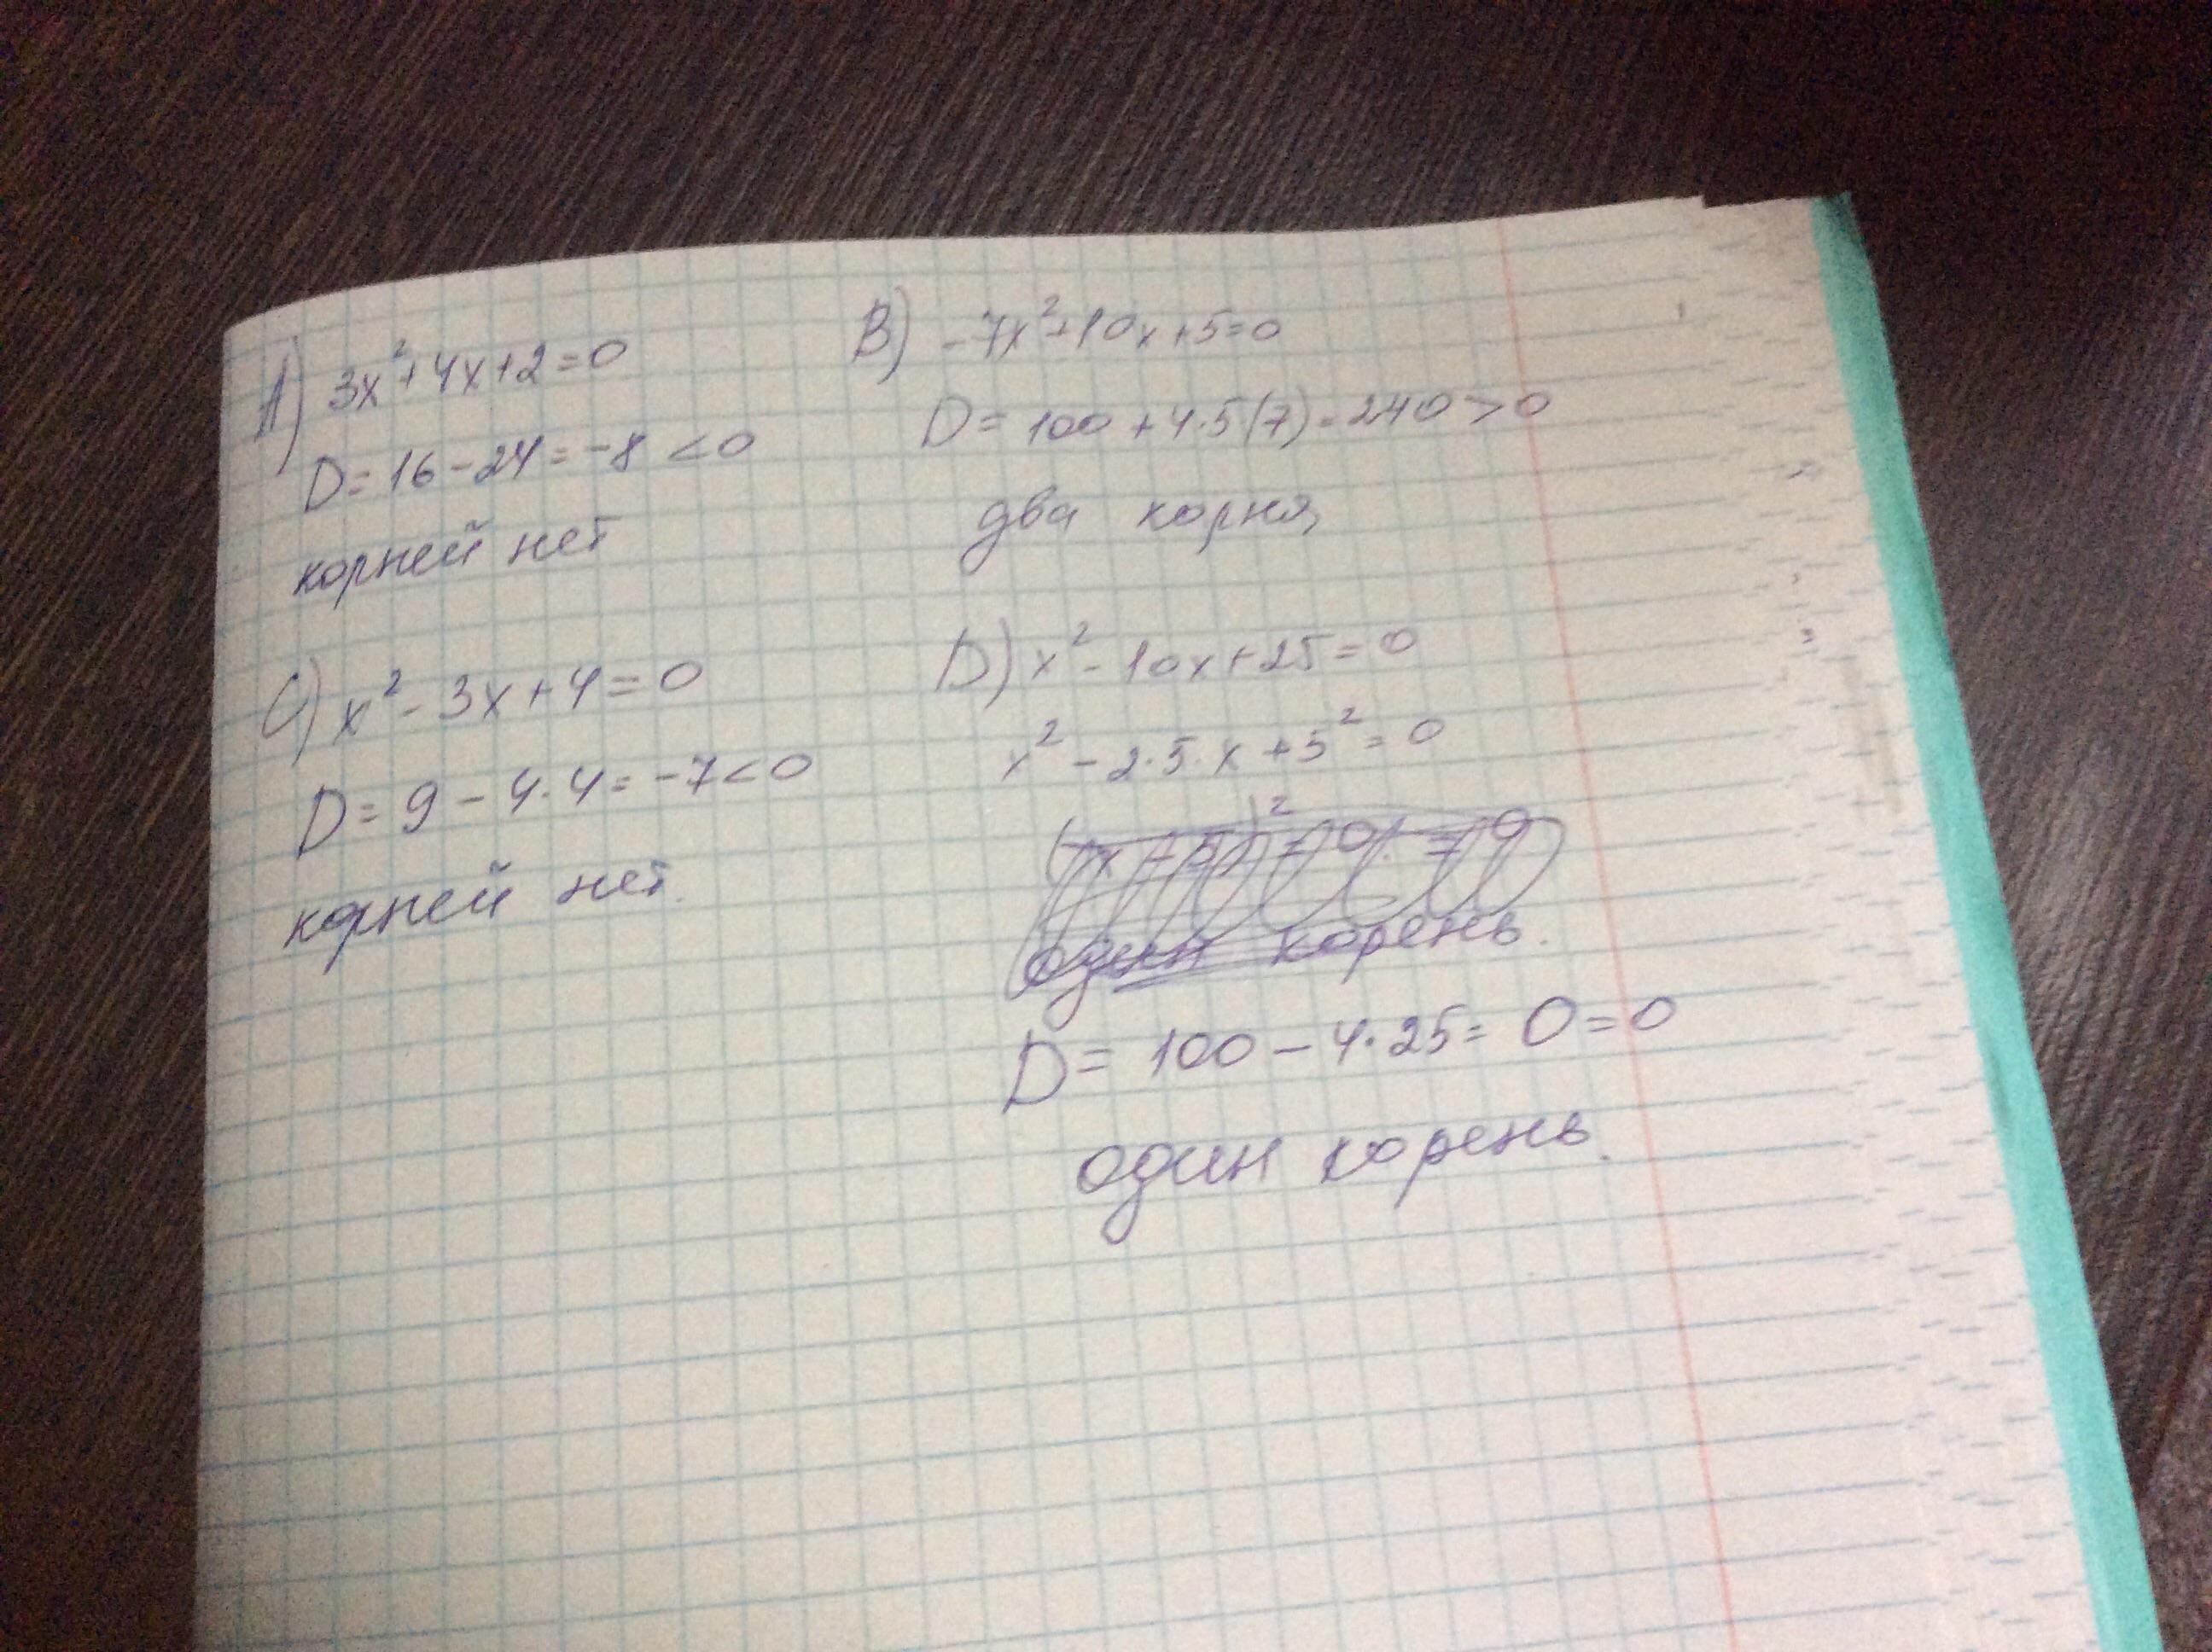 A) 3x²+4x+2=0
D=16-24=-8<0
корней нет
B) -7x²+10x+5=0
D=100+4·5(7)=240>0
два корня,
C) x²-3x+4=0
D=9-4·4=-7<0
корней нет.
D) x²-10x+25=0
x²-2·5·x+5²=0
один корень.
D=100-4·25=0=0
один корень.